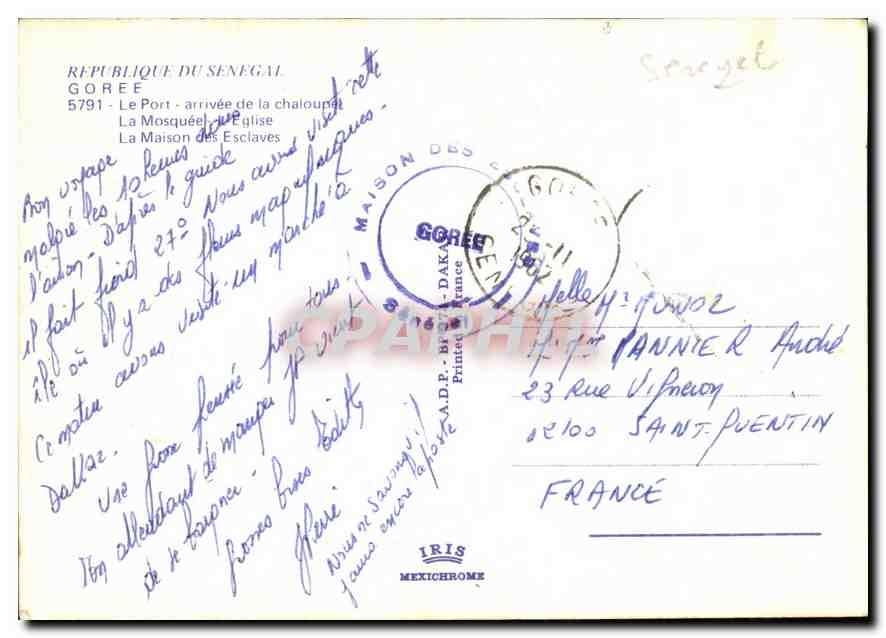 Senegal
REPUBLIQUE DU SENEGAL
GOREE
5791 - Le Port - arrivée de la chaloupe
La Mosquée - l'Eglise
La Maison des Esclaves
Bon voyage
malgré les 10 heures dans
l'avion - D'après le guide
il fait froid 27° Nous avons visité cette
île où il y a des fleurs magnifiques -
Ce matin avons visité un marché à
Dakar.
Une grosse pensée pour tous !
En attendant de manger JP vient
de se baigner -
Grosses bises Edith
Pierre
Nous ne savons
encore la poste
MAISON DES
GOREE
Sénégal
GOREE
11
1982
SENE
A.D.P. - BP - DAKAR
Printed France
CPAPHIL
Melle M
M. Mme VANNIER André
23 Rue Vigneron
12100 SAINT-QUENTIN
FRANCE
IRIS
MEXICHROME